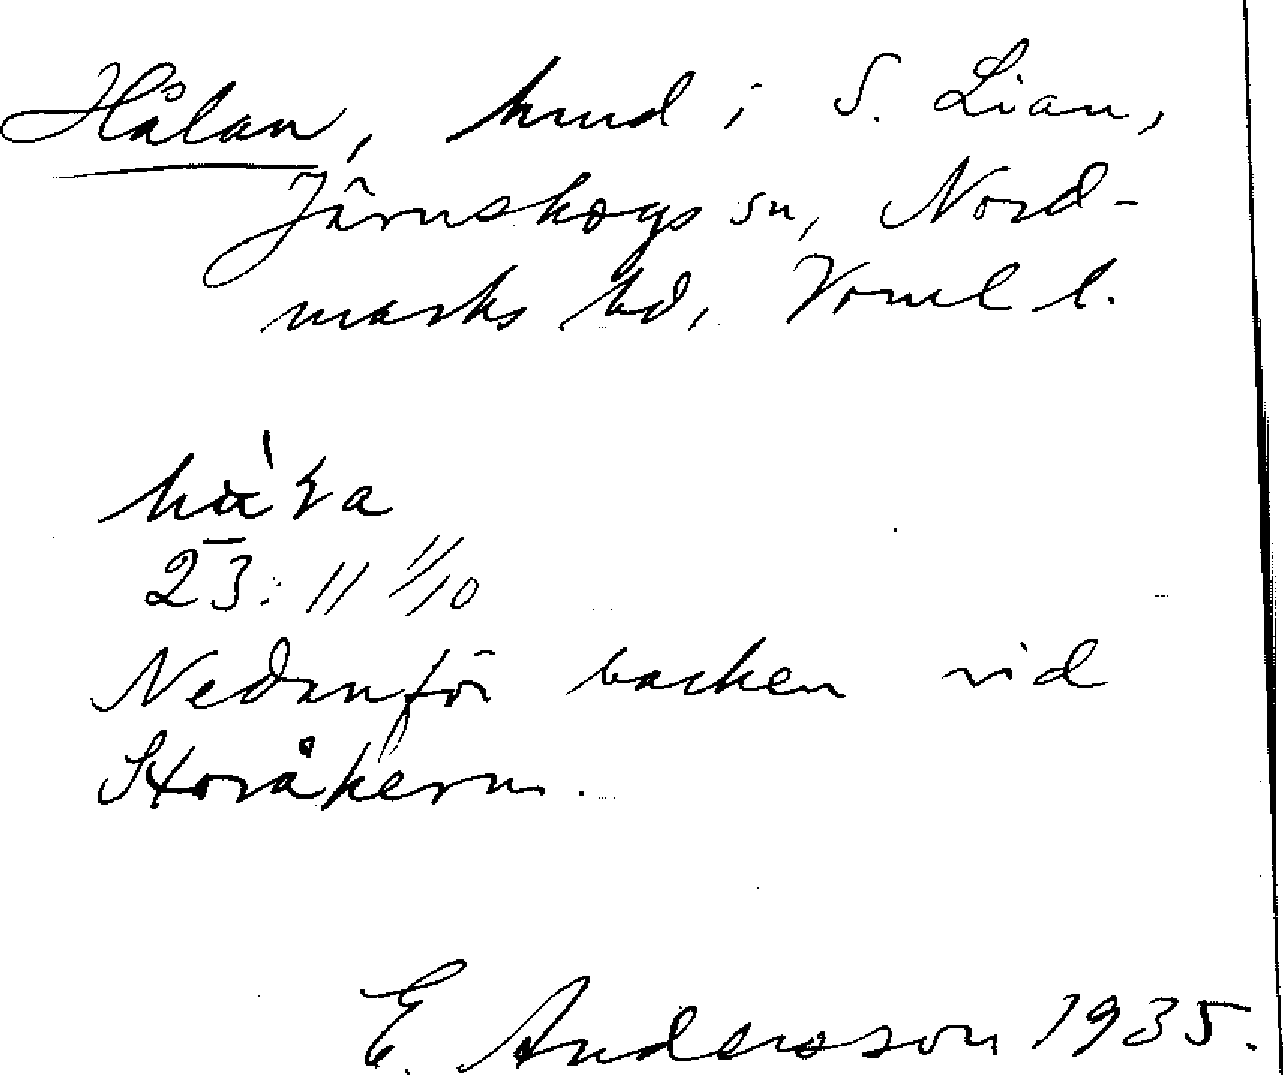 Hålan, hmd i S. Lian,
Järnskogs sn, Nord-
marks hd, Vrml l.
23: 11 11/10
Nedanför backen vid
Storåkern.
E. Andersson 1935.